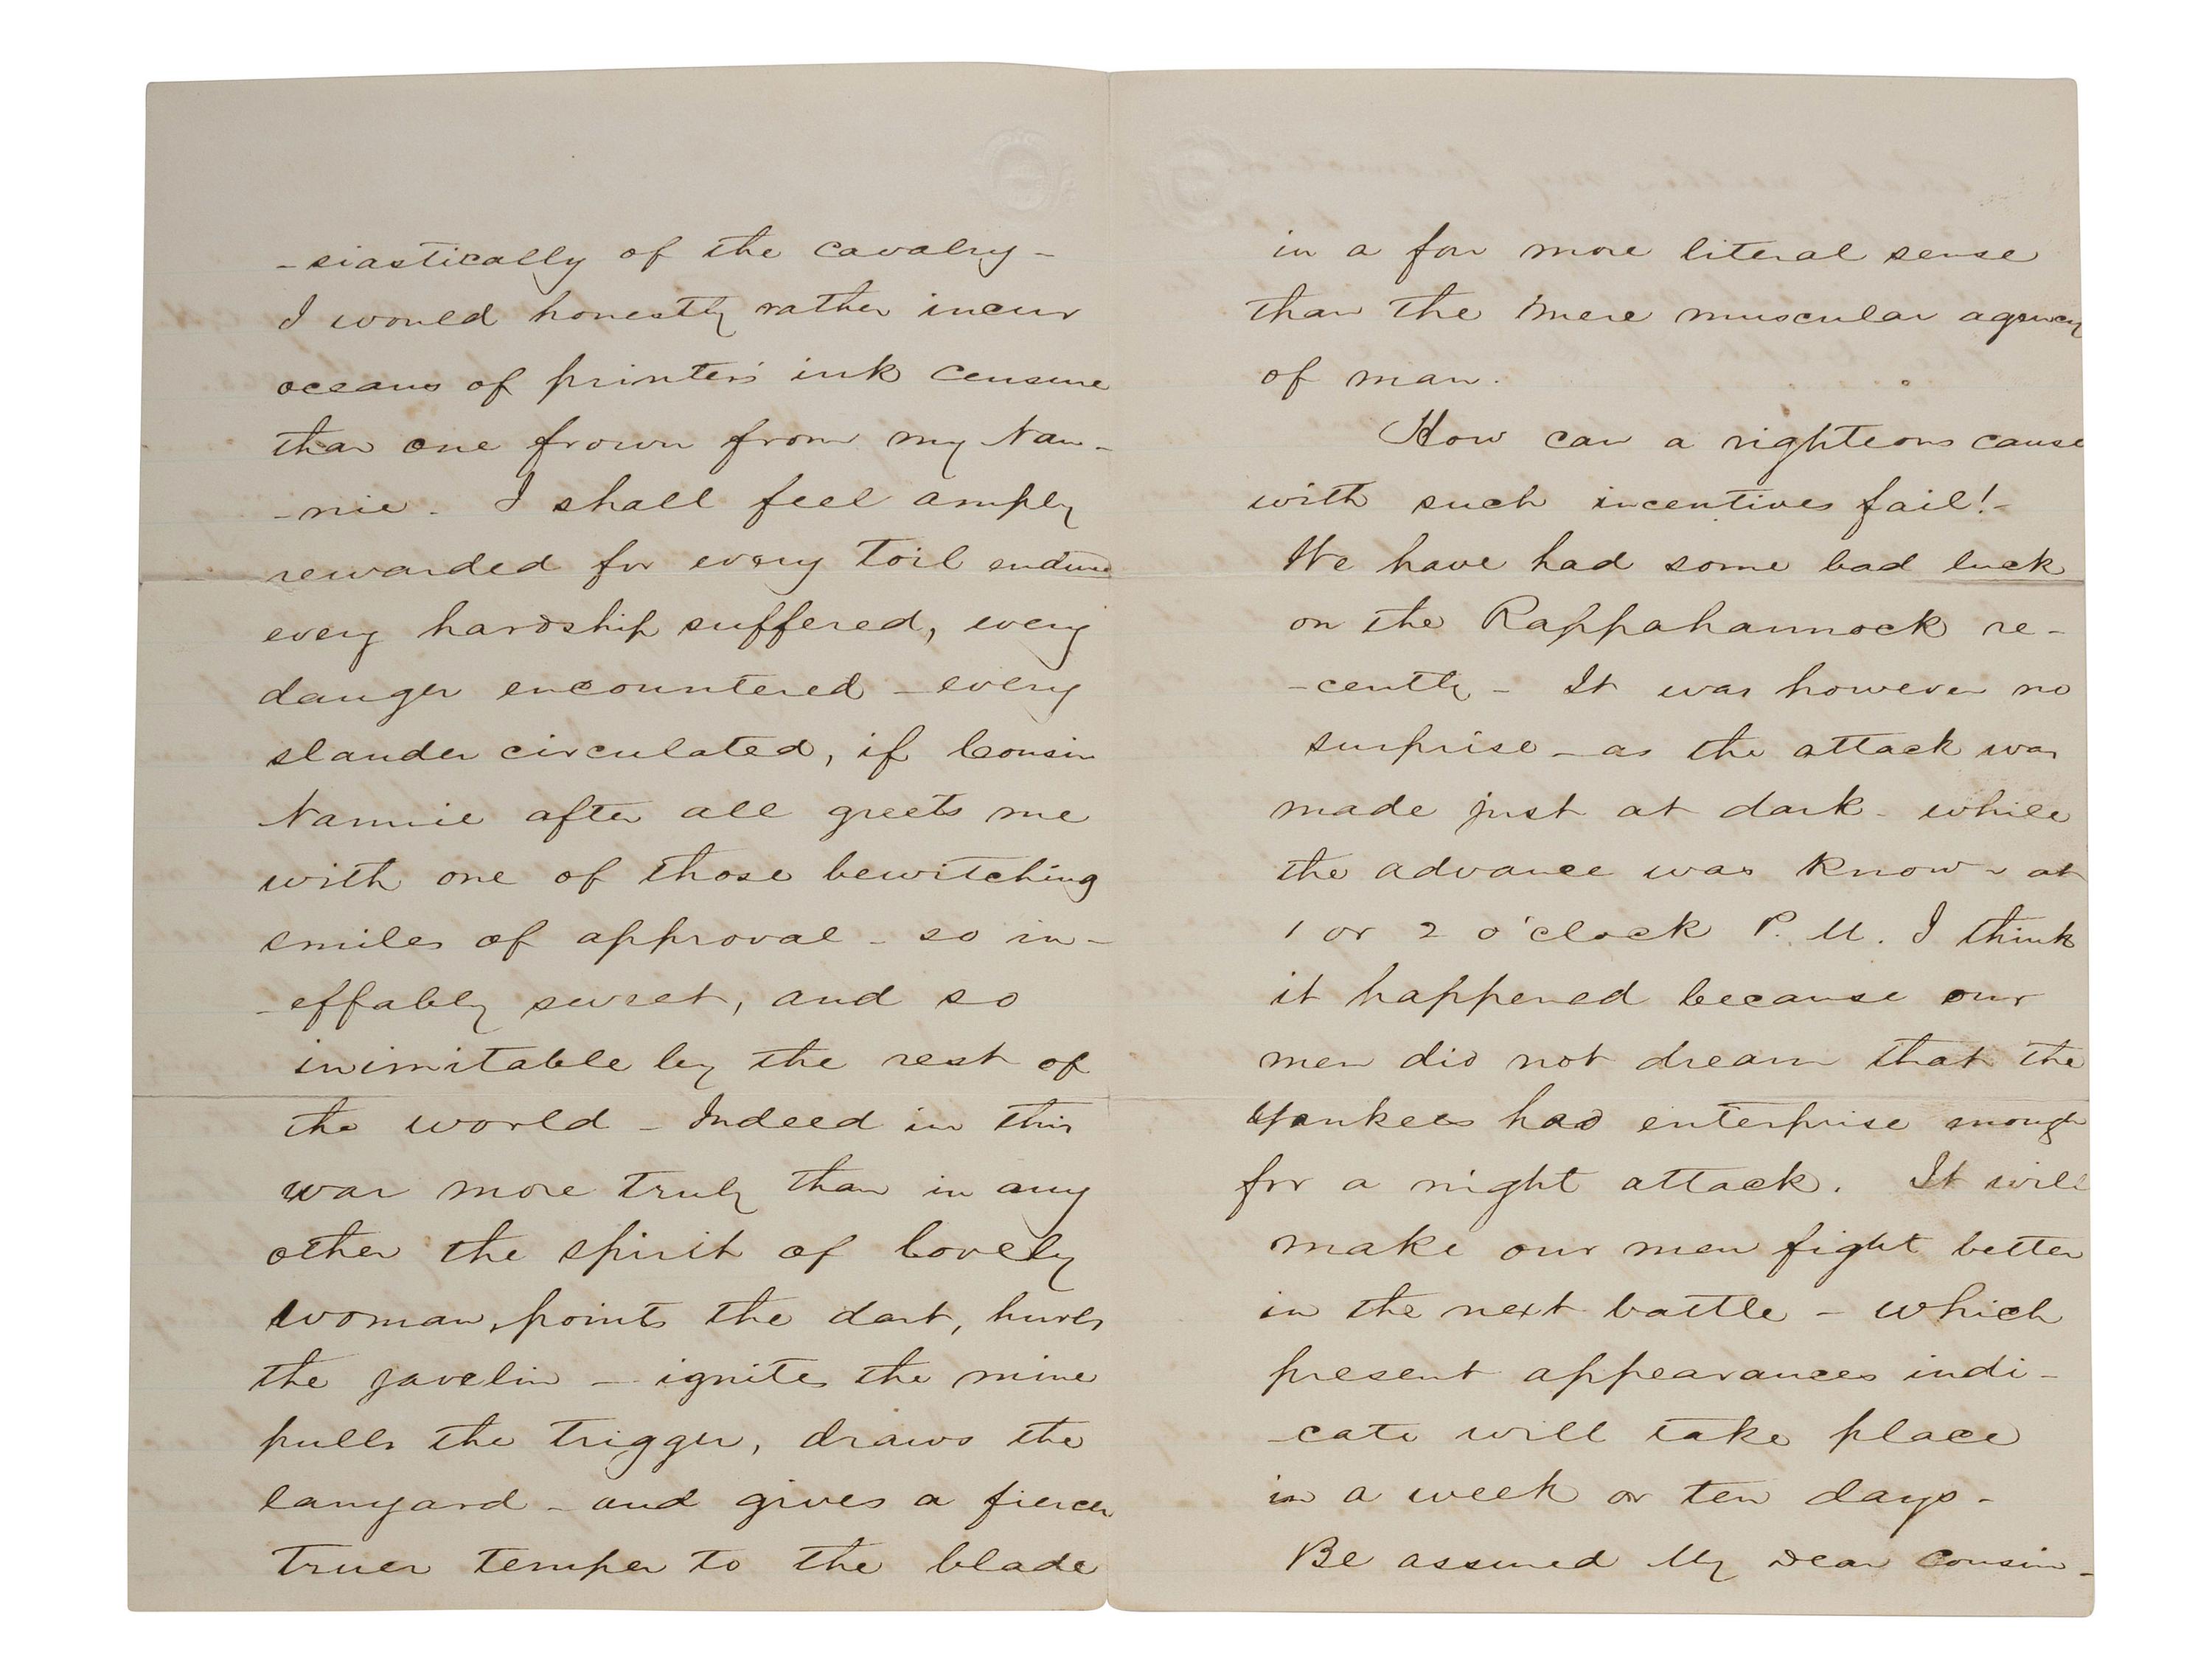 -siastically of the cavalry -
I would honestly rather incur
oceans of printer's ink censure
than one frown from my Nan-
-nie. I shall feel amply
rewarded for every toil endured
every hardship suffered, every
danger encountered - every
slander circulated, if Cousin
Nannie after all greets me
with one of those bewitching
smiles of approval - so in-
-effably sweet, and so
inimitable by the rest of
the world - Indeed in this
war more truly than in any
other the spirit of lovely
woman, points the dart, hurls
the javelin - ignites the mine
pulls the trigger, draws the
lanyard - and gives a fiercer
truer temper to the blade
in a far more literal sense
than the mere muscular agency
of man.
How can a righteous cause
with such incentives fail! -
We have had some bad luck
on the Rappahannock re-
-cently - It was however no
surprise - as the attack was
made just at dark - while
the advance was known at
1 or 2 o'clock P.M. I think
it happened because our
men did not dream that the
Yankees had enterprise enough
for a night attack. It will
make our men fight better
in the next battle - which
present appearances indi-
-cate will take place
in a week or ten days -
Be assured My Dear Cousin -